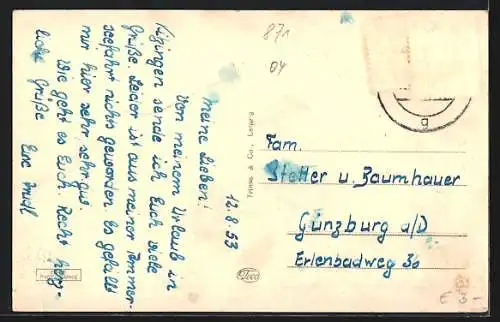 12.8.53
Meine Lieben!
Von meinem Urlaub in
Kizingen sende ich Euch viele
Grüße. Leider ist aus meiner Ammer-
seefahrt nichts geworden. es gefällt
mir hier sehr, sehr gut
Wie geht es Euch. Recht herz-
liche Grüße
Eure
871
04
Trinks & Co., Leipzig
g
Fam.
Stetter u. Baumhauer
Günzburg a/D
Erlenbadweg 36
E 3-